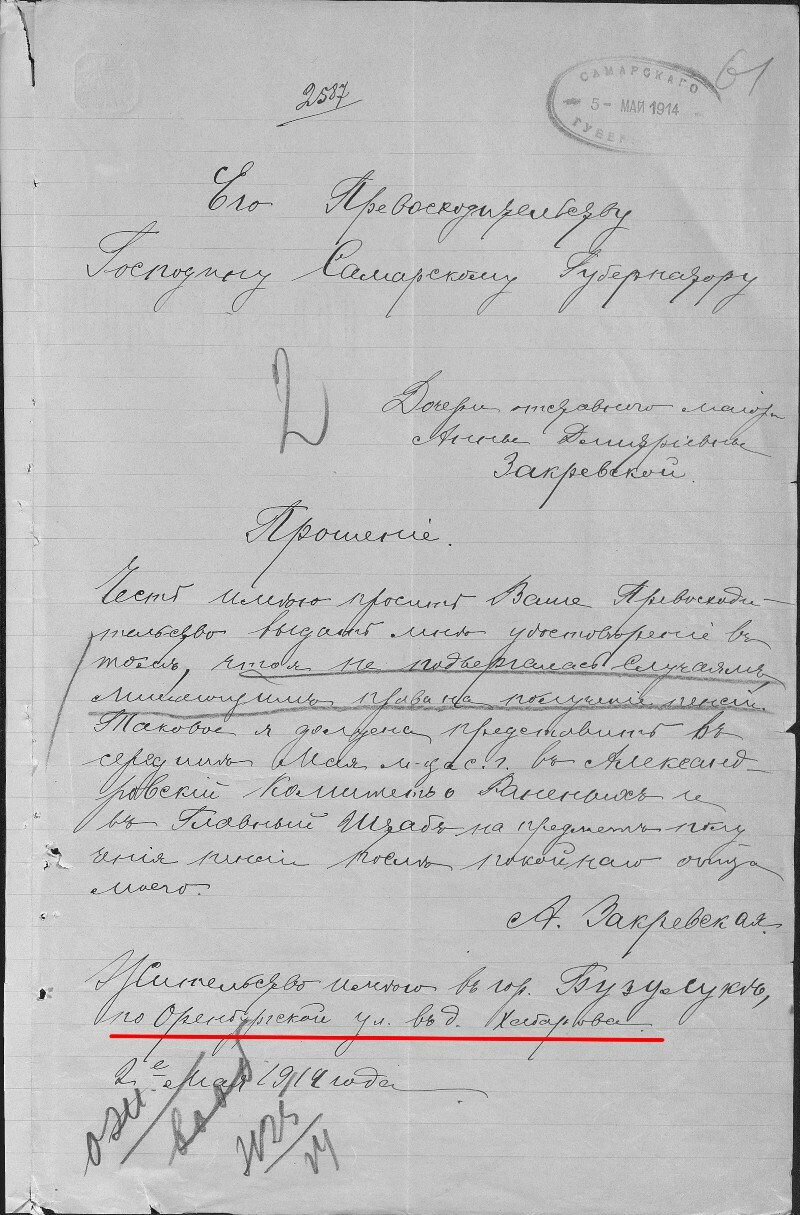 61
2587
САМАРСКАГО
5- МАЙ 1914
ГУБЕР
Его Превосходительству
Господину Самарскому Губернатору
2
Дочери отставного маіора
Анны Дмитріевны
Закревской.
Прошеніе.
Честь имѣю просить Ваше Превосходи-
тельство выдать мнѣ удостовѣреніе въ
томъ, что я не подвергалась случаямъ,
лишающимъ права на полученіе пенсіи.
Таковое я должна представить въ
серединѣ Мая м-ца с. г. въ Александ-
ровскій Комитетъ о Раненыхъ и
въ Главный Штабъ на предметъ полу
ченія пенсіи послѣ покойнаго отца
моего.
А. Закревская.
Жительство имѣю въ гор. Бузулукѣ,
по Оренбургской ул. въ д. Хабарова.
2е Мая 1914 года